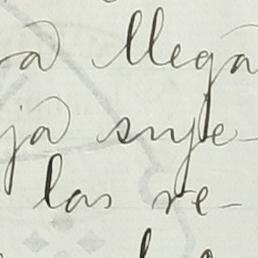 ra llega
ja suje-
las re-